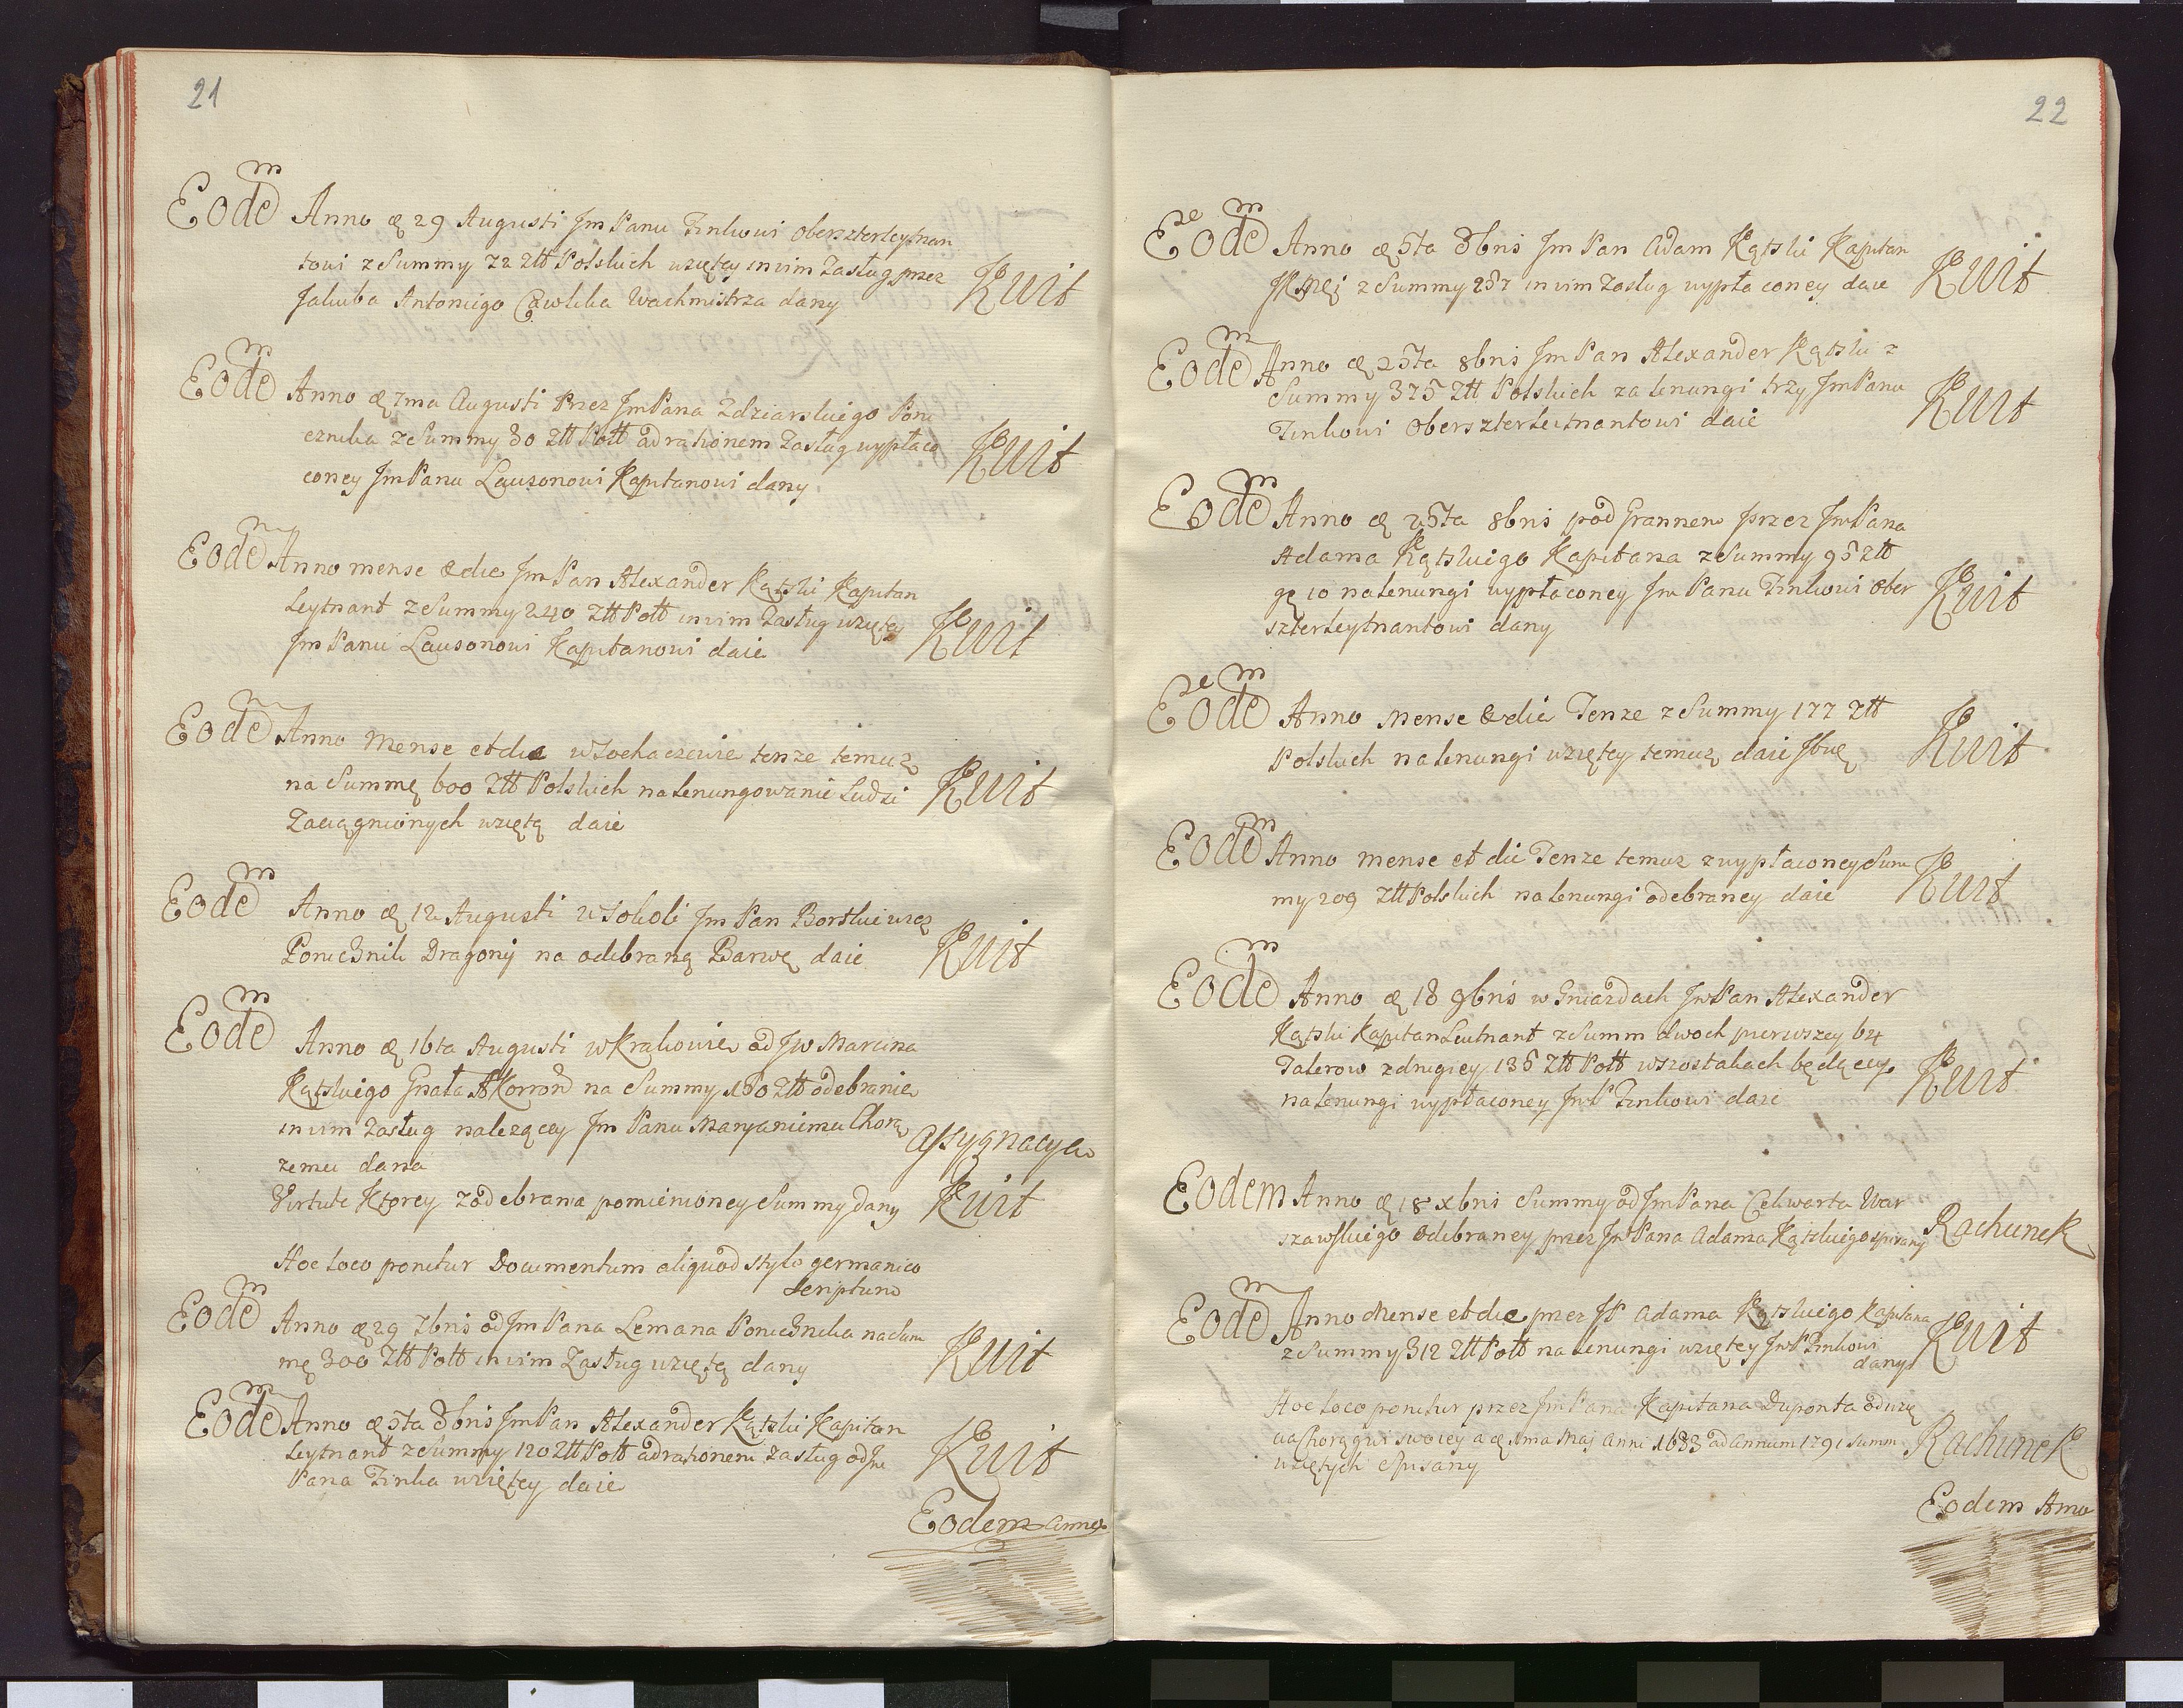 21
Eodem Anno & 29 Augusti Jm Panu Finkowi Oberszterleytnan
towi z Summy 72 Ztt Polskich wziętey in vim Zasług przez
Jakuba Antoniego Wachmistrza dany Kwit
Eodem Anno & 7ma Augusti Przez Jm Pana Zdziarskiego Poru
cznika z Summy 30 Ztt Poll ad rationem Zasług wypłaco
coney Jm Panu Lausonowi Kapitanowi dany Kwit
Eodem Anno mense & die Jm Pan Alexander Kątski Kapitan
Leytnant z Summy 240 Ztt Poll in vim Zasług wziętey
Jm Panu Lausonowi Kapitanowi daie Kwit
Eodem Anno Mense et die w Sochaczewie tenze temuz
na Summę 600 Ztt Polskich na lenungowanie Ludzi
Zaciągnionych wziętą daie Kwit
Eodem Anno & 12 Augusti w Sokoli Jm Pan
Porucznik Dragonij na odebraną Barwę daie Kwit
Eodem Anno & 16ta Augusti w Krakowie od Jw Marcina
Kątskiego Gnała A Korrond na Summy 180 Ztt odebranie
in vim Zasług nalezącey Jm Panu Maryaniemu Chorą
zemu dana Assygnacya
Virtute Ktorey z odebrana pomienioney Summy dany Kwit
Hoc loco ponitur Documentum aliquod stylo germanico
scriptum
Eodem Anno & 29 7bris od Jm Pana Lemana Porucznika na Sum
mę 300 Ztt Poll in vim Zasług wziętą dany Kwit
Eodem Anno & 5ta 8bris Jm Pan Alexander Kątski Kapitan
Leytnant z Summy 120 Ztt Poll ad rationem Zasług od Jm
Pana Finka wziętey daie Kwit
Eodem Anno
22
Eodem Anno & 5ta 8bris Jm Pan Adam Kątski Kapitan
JKMci z Summy 257 in vim Zasług wypłaconey daie Kwit
Eodem Anno & 25ta 8bris Jm Pan Alexander Kątski z
Summy 375 Ztt Polskich za lenungi trzy Jm Panu
Finkowi Oberszterleitnantowi daie Kwit
Eodem Anno & 25ta 8bris pod Grannem przez Jm Pana
Adama Kątskiego Kapitana z Summy 95 Ztt
gę 10 na lenungi wypłaconey Jm Panu Finkowi Ober
szterleytnantowi dany Kwit
Eodem Anno Mense & die Tenze z Summy 177 Ztt
Polskich na lenungi wziętey temuz daie Kwit
Eodem Anno mense et die Tenze temuz z wypłaconey Sum
my 209 Ztt Polskich na lenungi odebraney daie Kwit
Eodem Anno & 18 9bris w Gniazdach Jm Pan Alexander
Kątski Kapitan Leutnant z Summ dwoch pierwszey 64
Talerow z drugiey 136 Ztt Poll w szostakach będącey
na lenungi wypłaconey Jm P Finkowi daie Kwit
Eodem Anno & 18 xbris Summy od Jm Pana Cehwarta War
szawskiego Odebraney przez Jm Pana Adama Kątskiego spisany Rachunek
Eodem Anno Mense et die przez JP Adama Kątskiego Kapitana
z Summy 312 Ztt Poll na lenungi wziętey Jm P Finkowi
dany Kwit
Hoc loco ponitur przez Jm Pana Kapitana Duponta od
Chorągwi swoiey a & 1ma Maj Anni 1683 ad Annum 1791 Summ
wziętych Spisany Rachunek
Eodem Anno